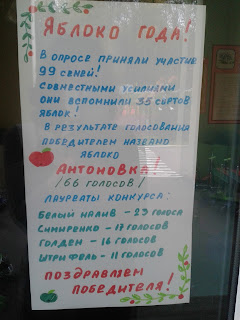 Яблоко года!
В опросе приняли участие
99 семей!
Совместными усилиями
они вспомнили 35 сортов
яблок!
В результате голосования
победителем названо
яблоко
Антоновка!
/66 голосов/
Лауреаты конкурса:
Белый налив – 23 голоса
Симиренко – 17 голосов
Голден – 16 голосов
Штрифель – 11 голосов
Поздравляем
победителя!